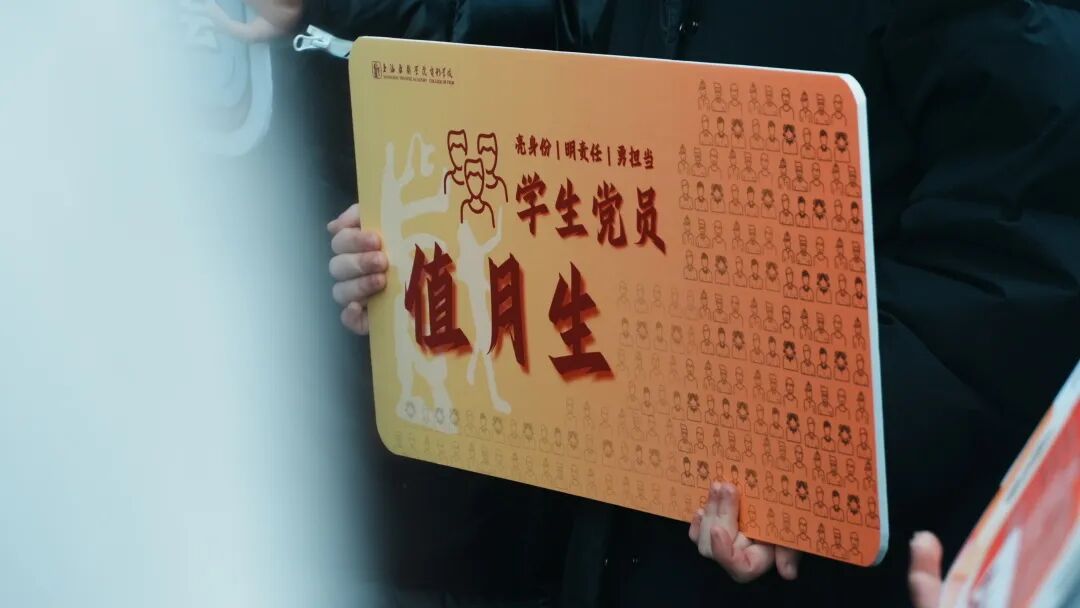 上海戏剧学院 电影学院
SHANGHAI THEATRE ACADEMY COLLEGE OF FILM
亮身份 | 明责任 | 勇担当
学生党员
值月生